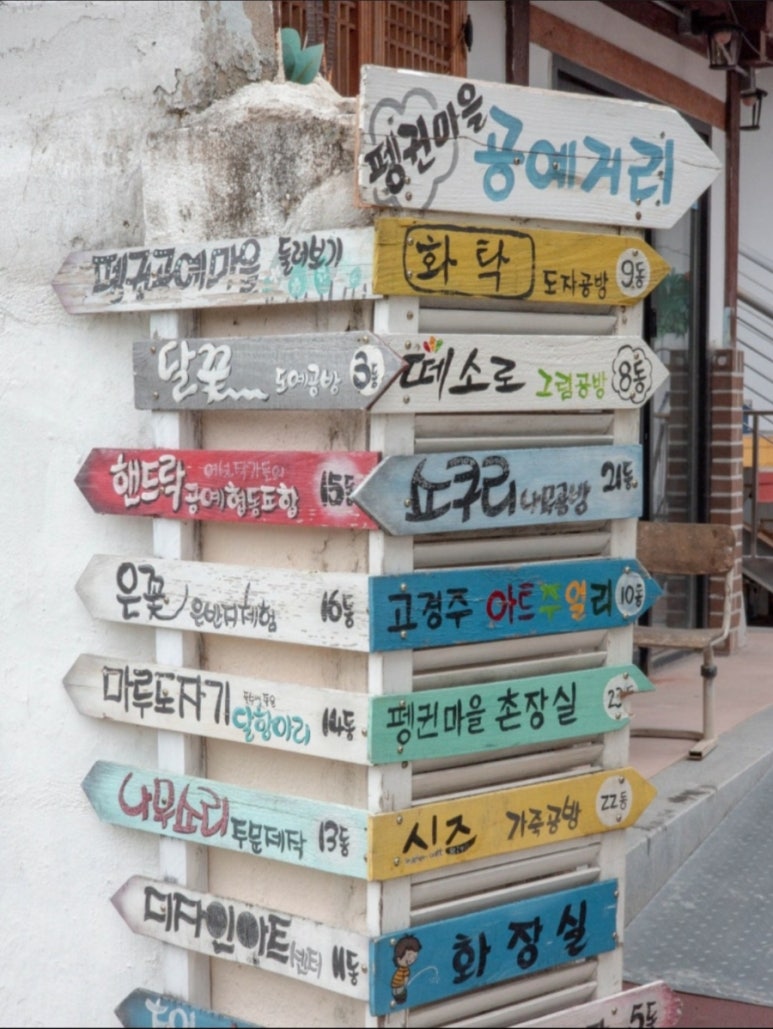 펭귄마을 공예거리
펭귄공예마을 둘러보기
화탁 도자공방 9동
달꽃 도예공방 3동
떼소로 그림공방 8동
핸드락 공예협동조합 15동
쇼쿠리 나무공방 21동
은꽃 은반지체험 16동
고경주 아트주얼리 10동
마루도자기 달항아리 14동
펭귄마을 촌장실
나무소리 주문제작 13동
시즈 가죽공방 22동
디자인아트센터 11동
화장실
5동